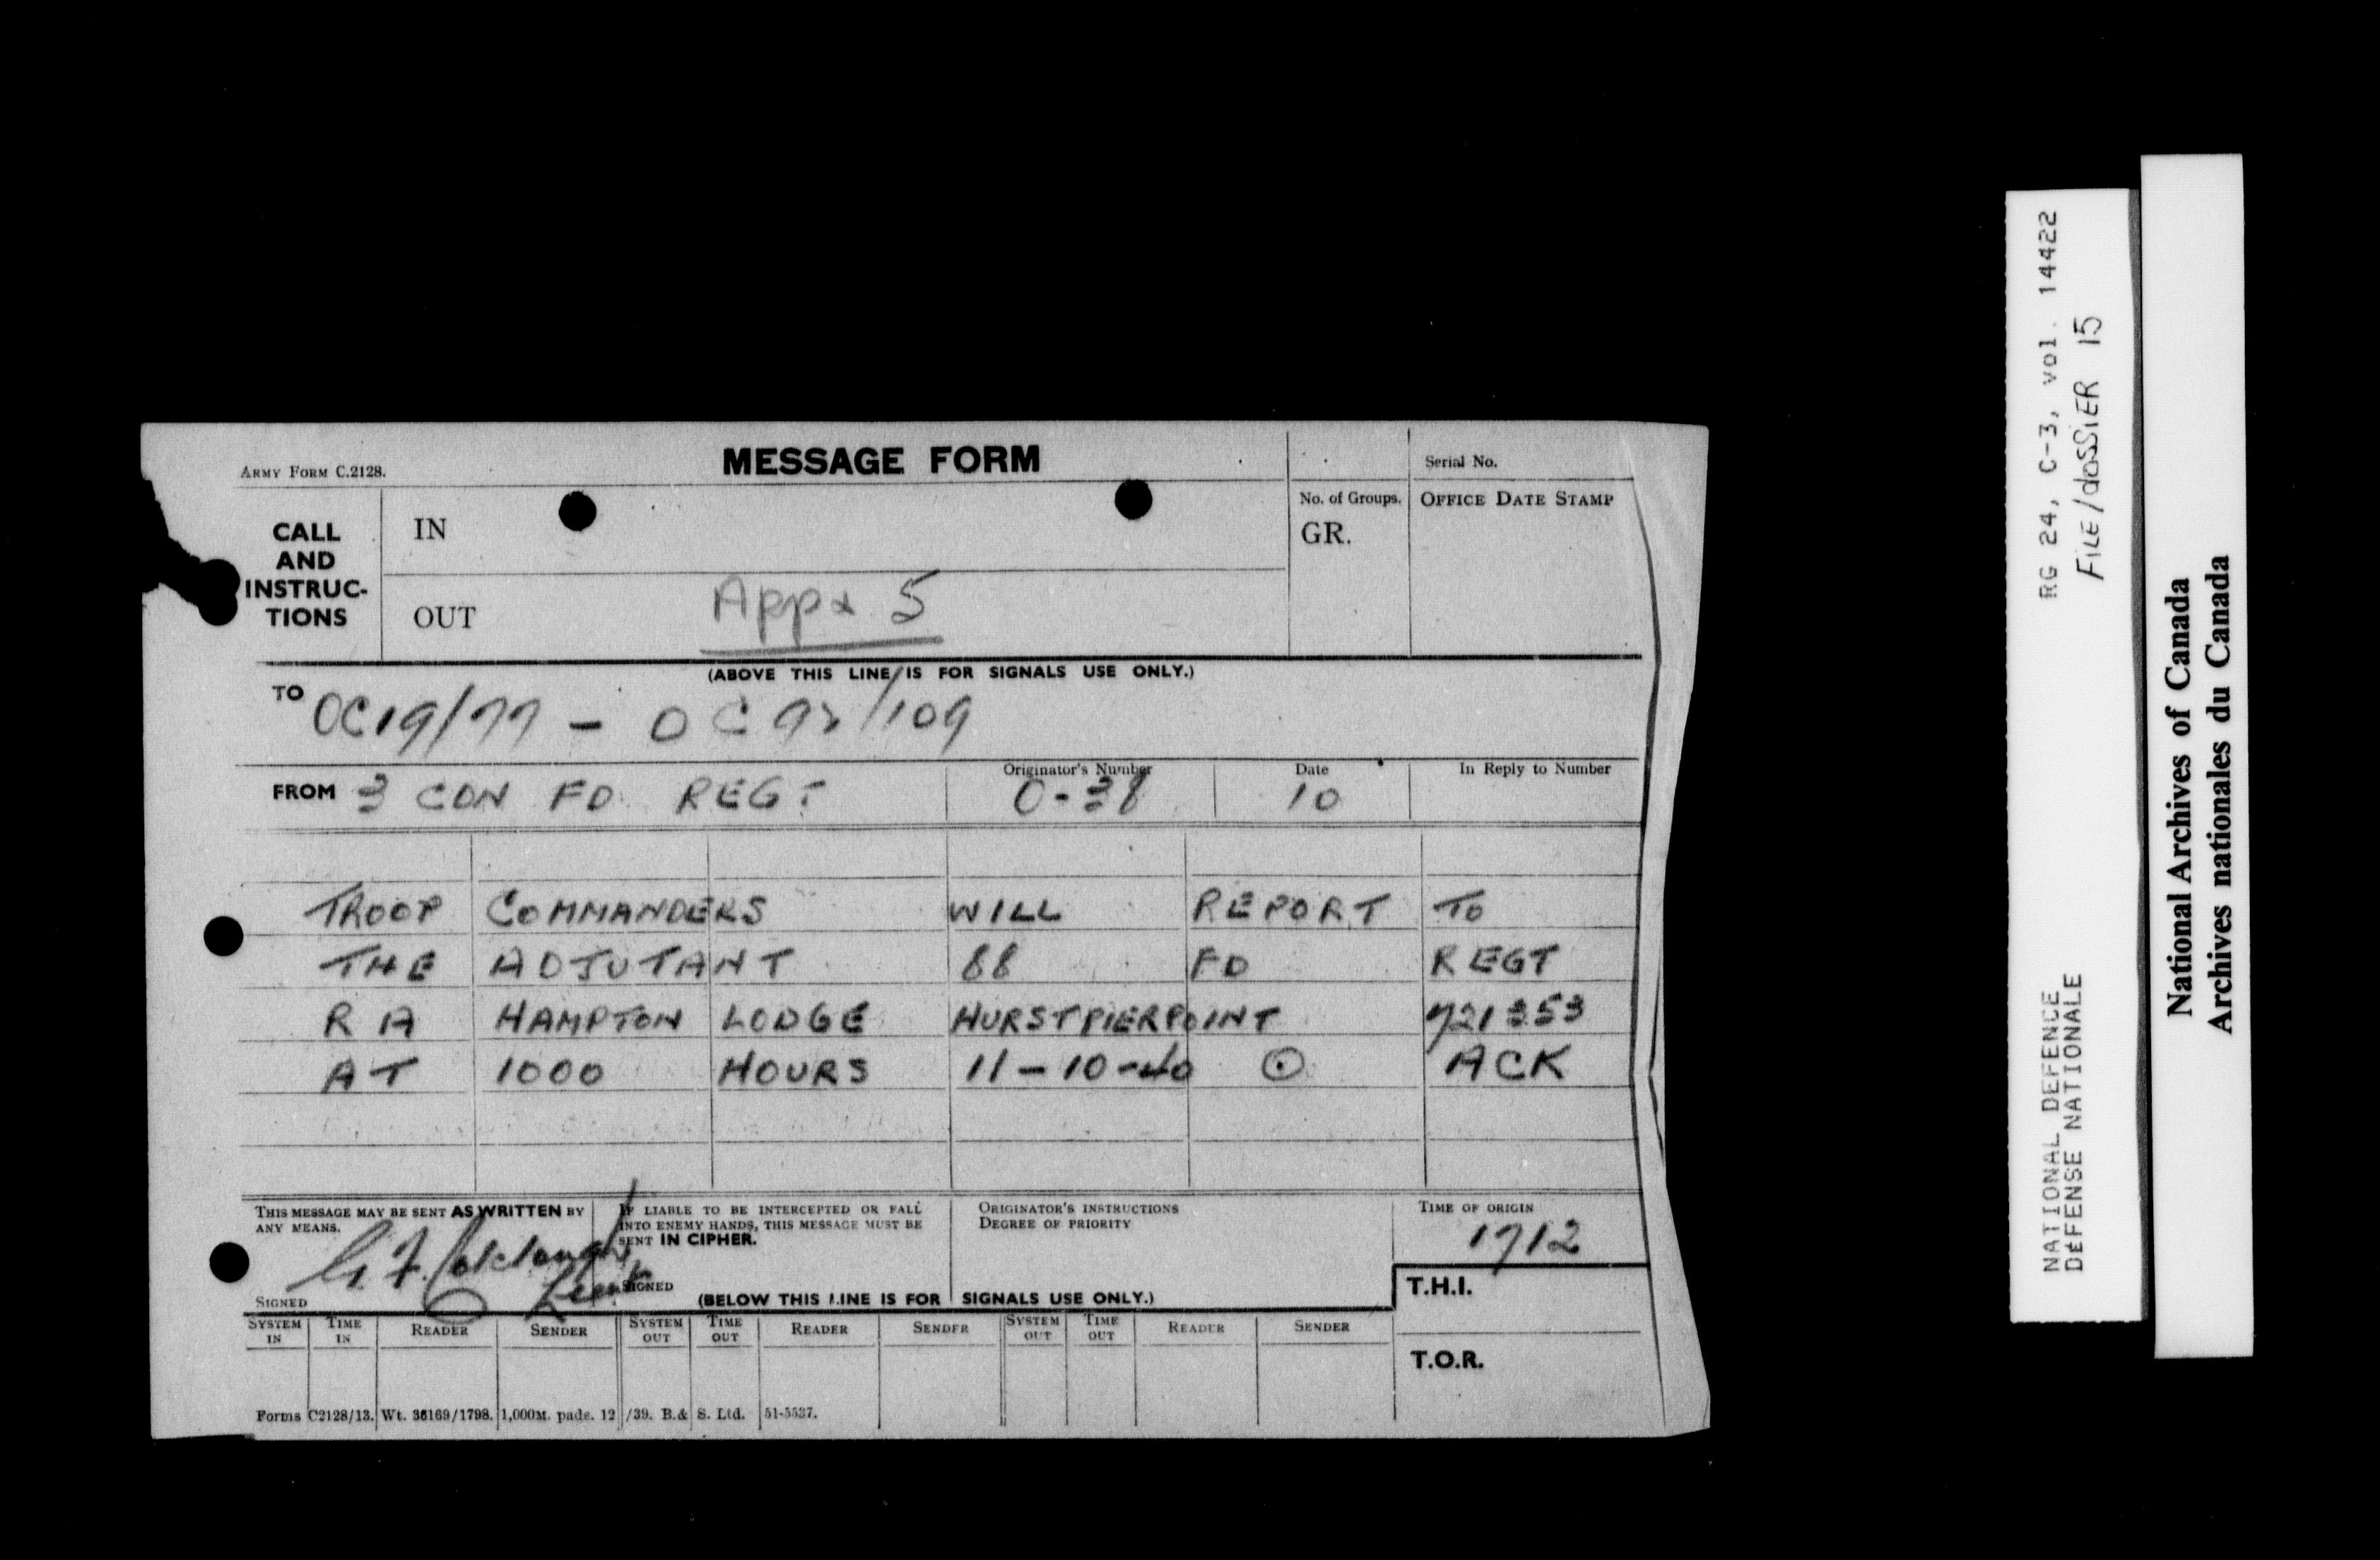 ARMY FORM C.2128.
MESSAGE FORM
Serial No.
CALL AND INSTRUC-TIONS
IN
No. of Groups.
GR.
OFFICE DATE STAMP
OUT
Appx 5
(ABOVE THIS LINE IS FOR SIGNALS USE ONLY.)
TO OC 19/77 - OC 92/109
FROM 3 CDN FD REGT
Originator's Number
O-38
Date
10
In Reply to Number
TROOP COMMANDERS WILL REPORT TO
THE ADJUTANT 88 FD REGT
RA HAMPTON LODGE HURSTPIERPOINT 721353
AT 1000 HOURS 11-10-40 ⊙ ACK
THIS MESSAGE MAY BE SENT AS WRITTEN BY
ANY MEANS.
SIGNED
Lieut
IF LIABLE TO BE INTERCEPTED OR FALL
INTO ENEMY HANDS, THIS MESSAGE MUST BE
SENT IN CIPHER.
SIGNED
ORIGINATOR'S INSTRUCTIONS
DEGREE OF PRIORITY
TIME OF ORIGIN
1712
(BELOW THIS LINE IS FOR SIGNALS USE ONLY.)
T.H.I.
T.O.R.
SYSTEM IN TIME IN READER SENDER SYSTEM OUT TIME OUT READER SENDER SYSTEM OUT TIME OUT READER SENDER
Forms C2128/13. Wt. 36169/1798. 1,000M. pads. 12/39. B.& S. Ltd. 51-5537.
RG 24, C-3, vol. 14422
FILE/dossier 15
NATIONAL DEFENCE
DÉFENSE NATIONALE
National Archives of Canada
Archives nationales du Canada